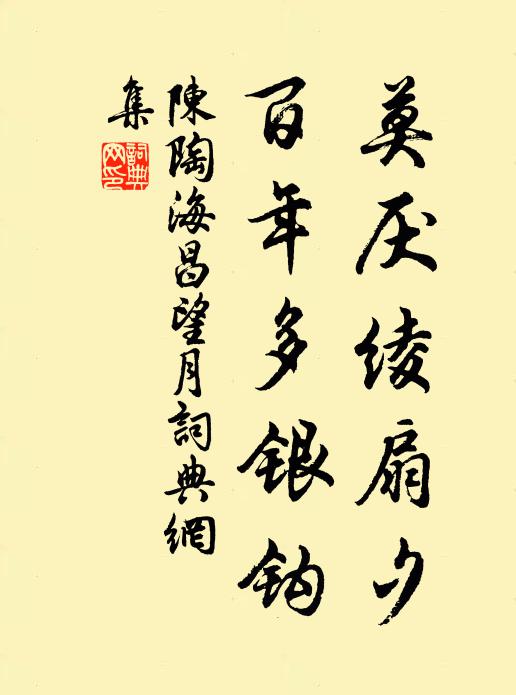 莫厌绫扇夕
百年多银钩
陳陶海昌望月詞典網
集
詞典
网印